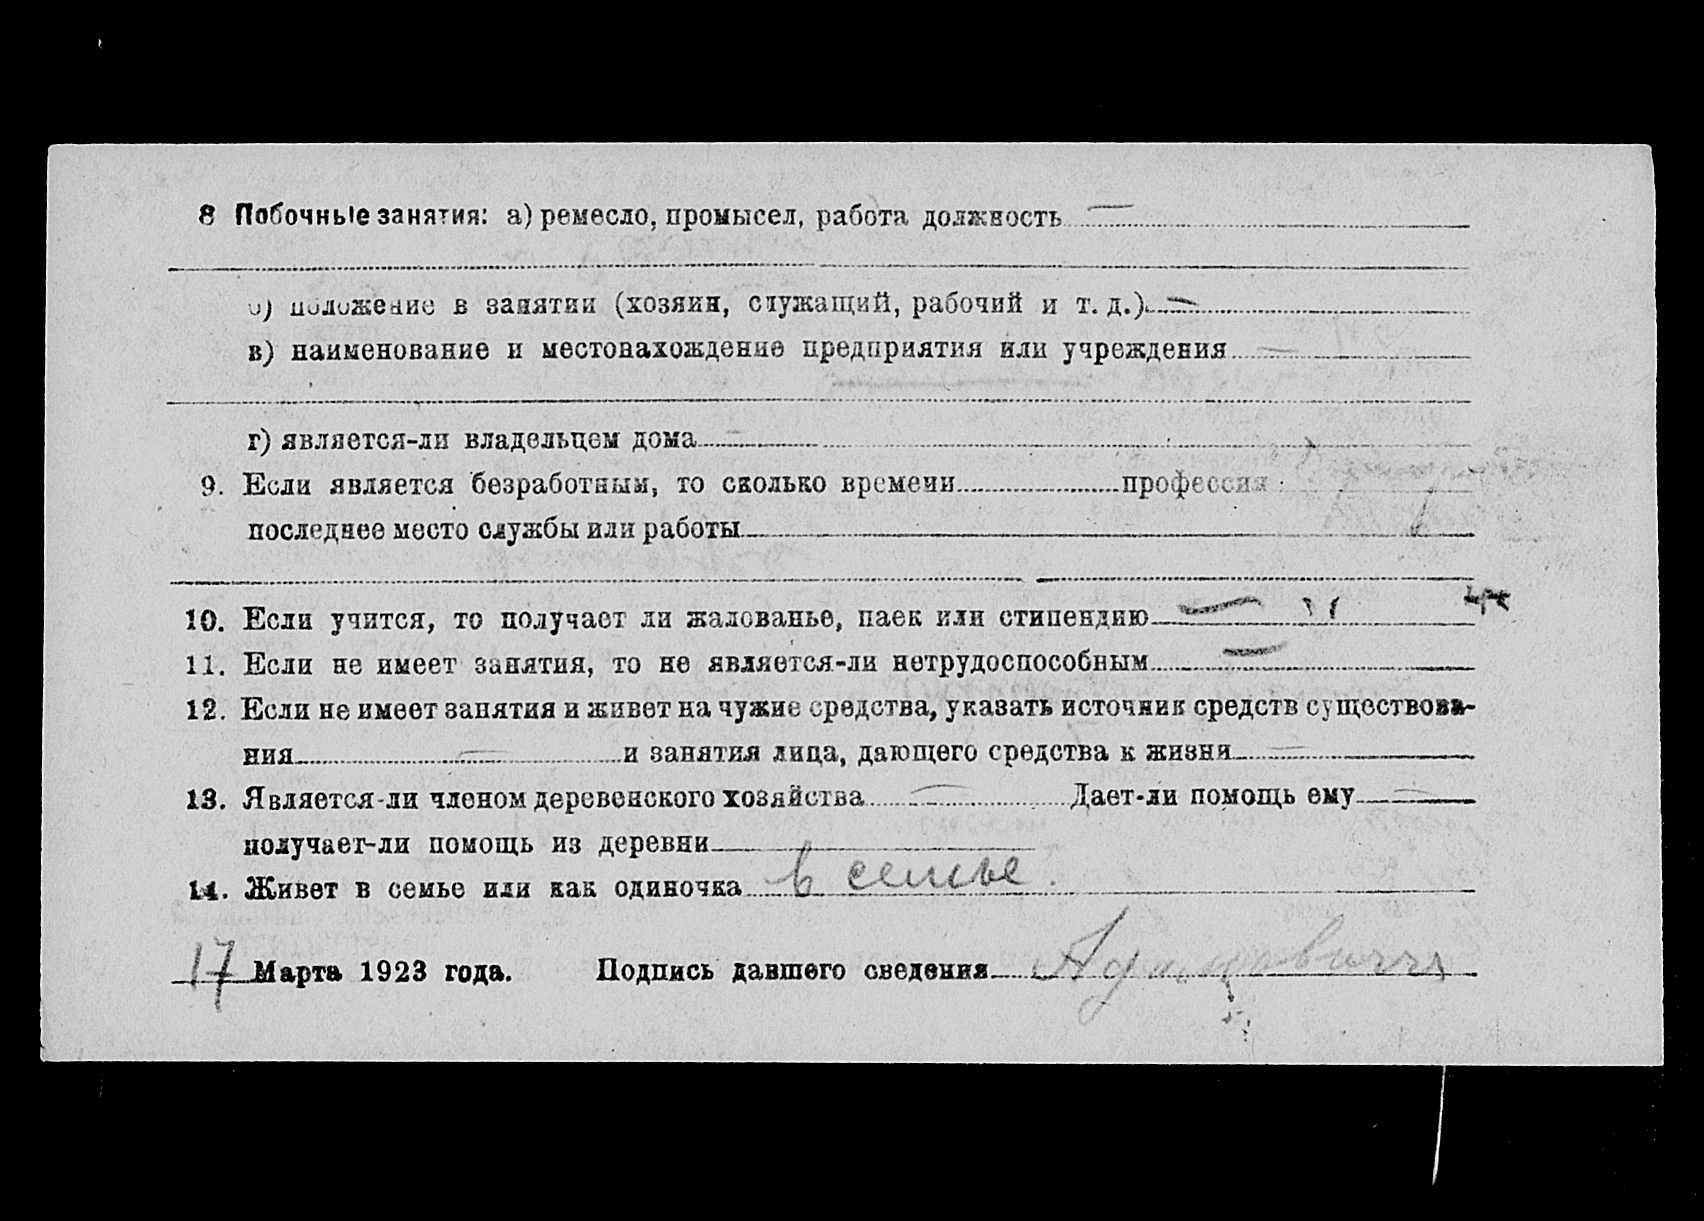 8 Побочные занятия: а) ремесло, промысел, работа должность —
б) положение в занятии (хозяин, служащий, рабочий и т. д.) —
в) наименование и местонахождение предприятия или учреждения —
г) является-ли владельцем дома —
9. Если является безработным, то сколько времени профессия
последнее место службы или работы
10. Если учится, то получает ли жалованье, паек или стипендию —
11. Если не имеет занятия, то не является-ли нетрудоспособным —
12. Если не имеет занятия и живет на чужие средства, указать источник средств существова-
ния — и занятия лица, дающего средства к жизни —
13. Является-ли членом деревенского хозяйства — Дает-ли помощь ему —
получает-ли помощь из деревни
14. Живет в семье или как одиночка в семье.
17 Марта 1923 года. Подпись давшего сведения